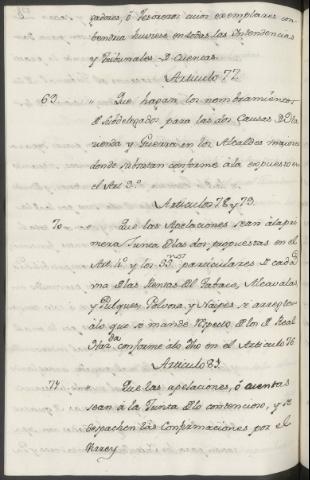 zadores, ó Tesoreros cuios exemplares con-
bendria huviese en todas las Yntendencias
y Tribunales D. Cuentas.
Articulo 77.
69. " Que hagan los nombramientos
D. Subdelegados para las dos Causas D. Ha-
zienda y Guerra en los Alcaldes maiores
donde subsistan conforme à lo expuesto en
el Art. 9.º
Articulos 78 y 79.
70 " Que las Apelaciones sean à la pri-
mera Junta D. las dos propuestas en el
Art. 4.º y los particulares D. cada
una D. las Rentas D. Tabaco, Alcavalas,
y Pulques, Polvora, y Naipes se arreglen
à lo que se mande respecto D. la D. Real
Haz.da conforme à lo dho en el Articulo 76
Articulo 83.
71 " Que las apelaciones, ó cuentas
sean à la Junta D. lo contencioso, y se
despachen las Confirmaciones por el
Virrey